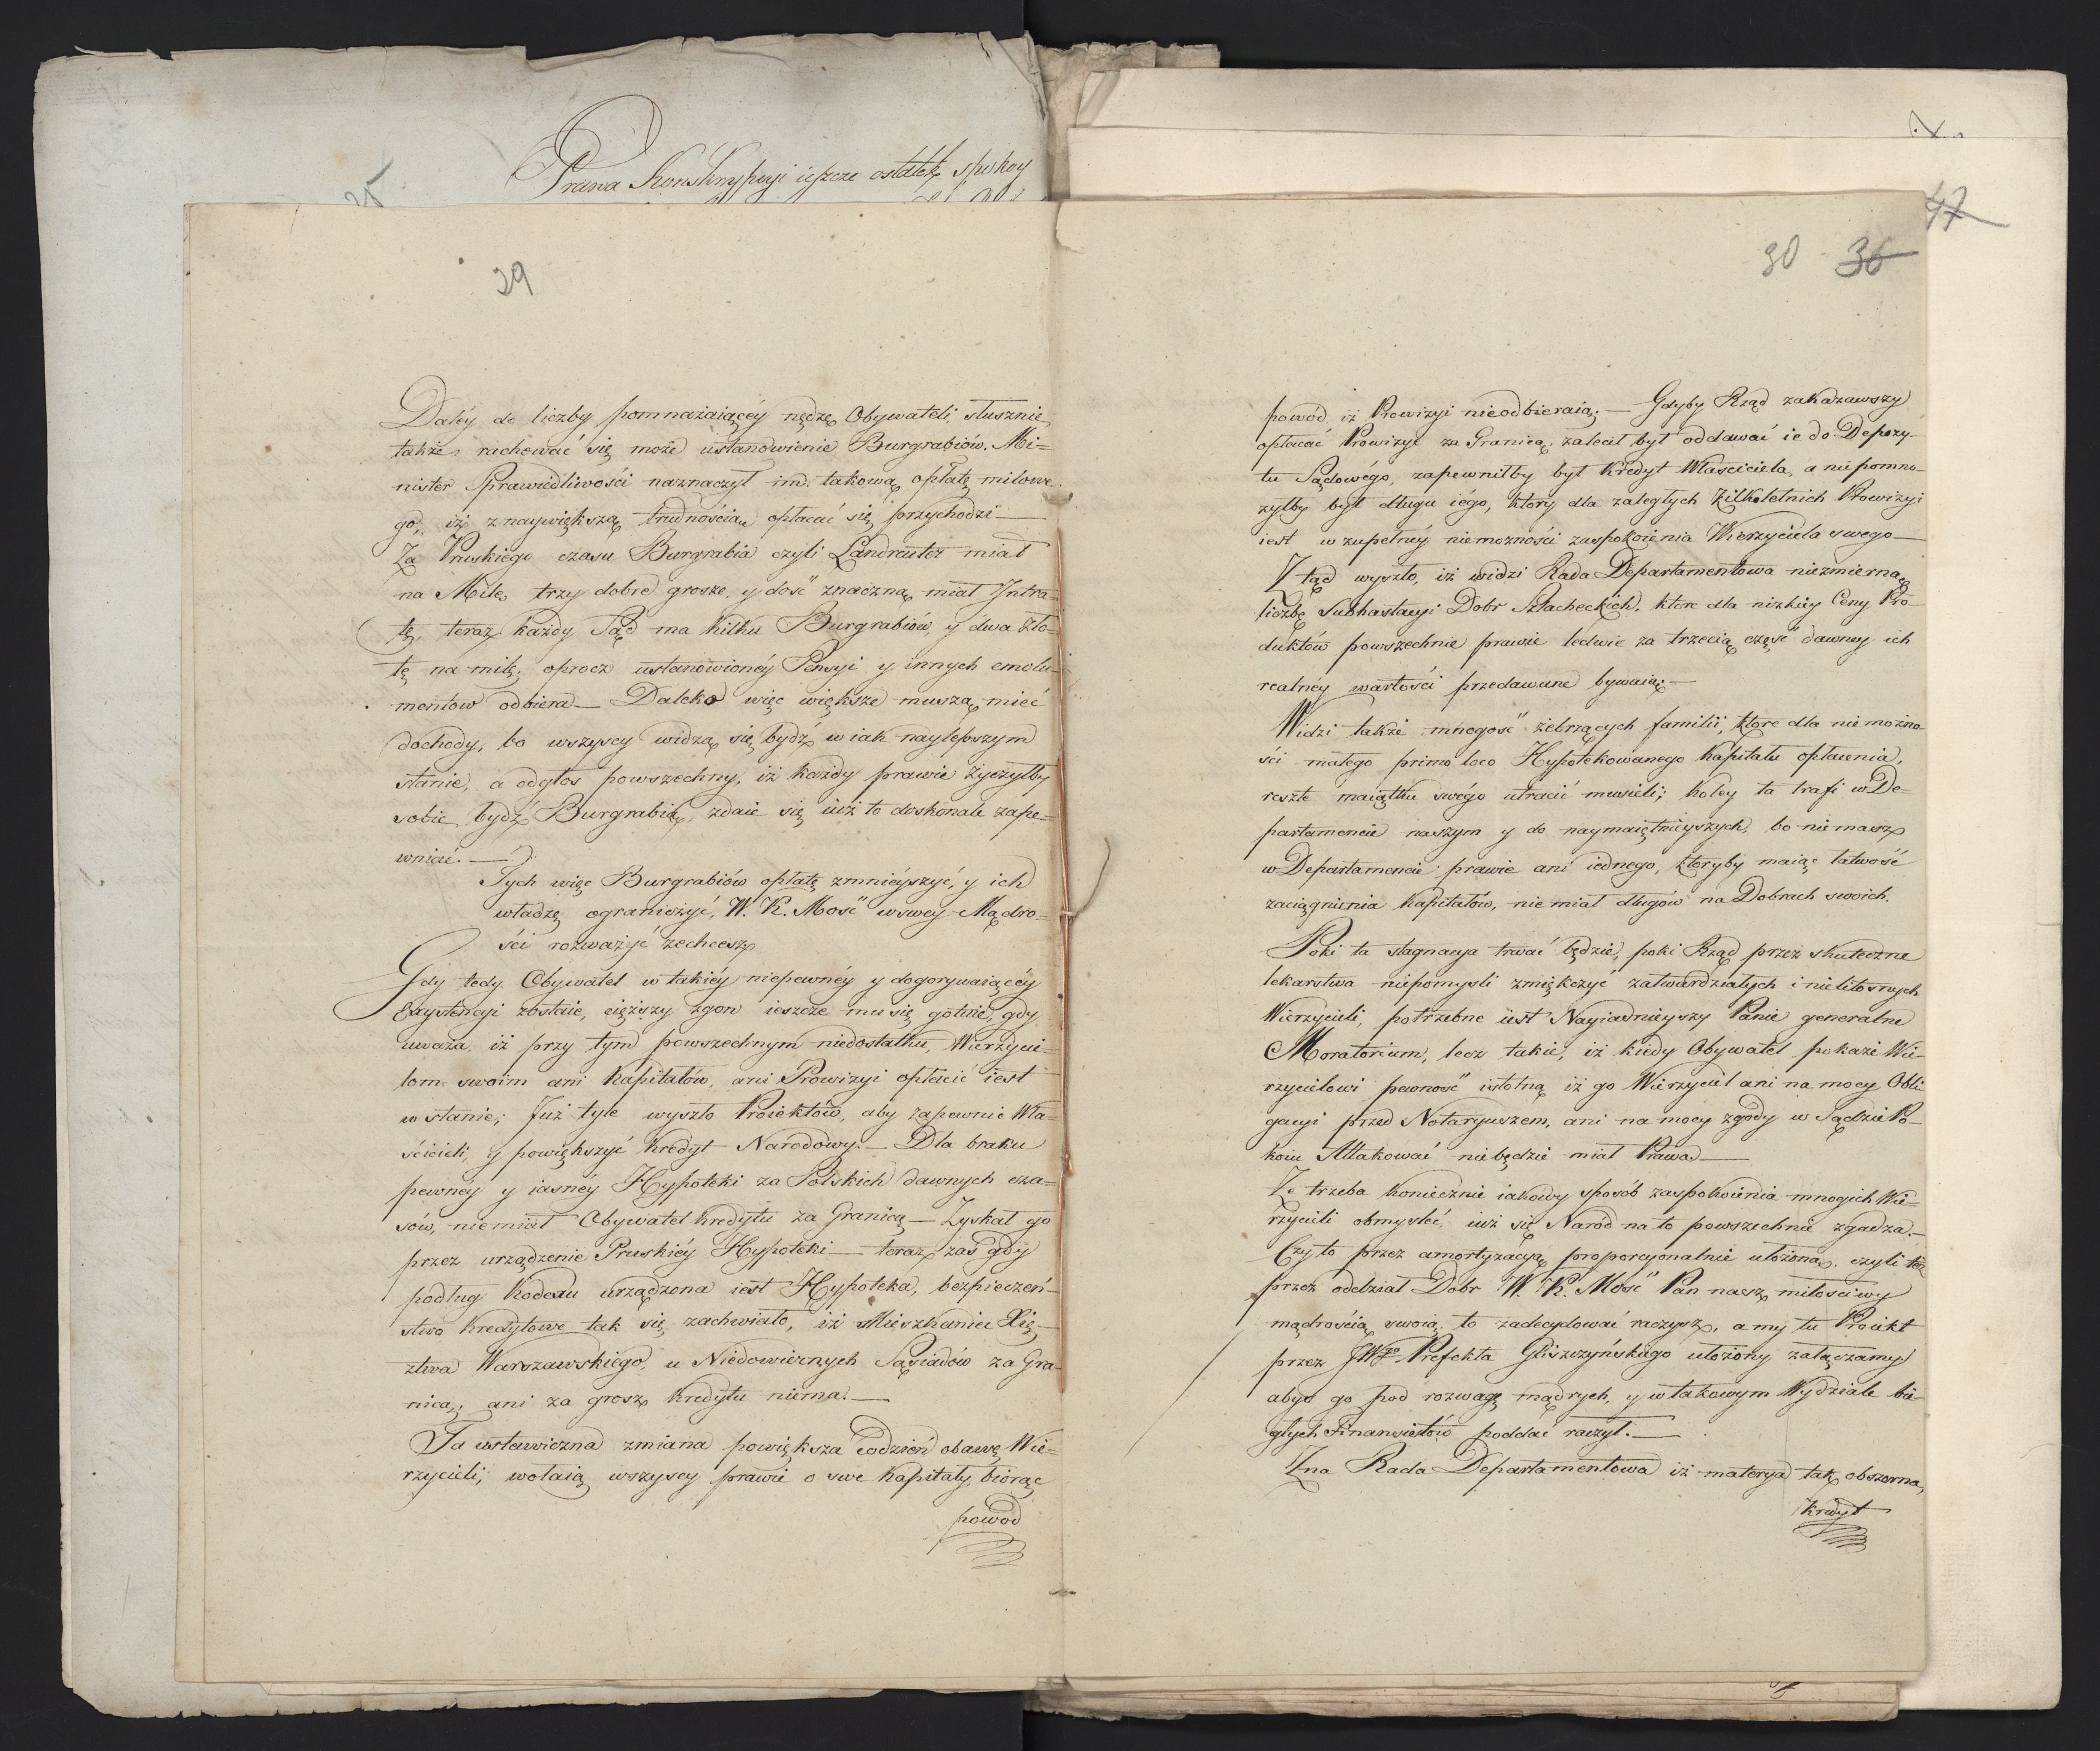 Prawa Konskrypcyi ieszcze ostatek spokoy
25
29
Daléy do liczby pomnażaiącéy nędzę Obywateli, słusznie
także rachować się może ustanowienie Burgrabiów. Mi=
nister Sprawiedliwości naznaczył im takową opłatę milowe
go, iż z naywiększą trudnością opłacać się przychodzi —
Za Pruskiego czasu Burgrabia czyli Landreuter miał
na Milę trzy dobre grosze, y dość znaczną miał Intra=
tę, teraz każdy Sąd ma kilku Burgrabiów, y dwa Zło=
tę na milę, oprocz ustanowionéy Pensyi y innych emolu=
mentow odbiera — Daleko więc większe muszą mieć
dochody, bo wszyscy widzą się bydź w iak naylepszym
stanie, a odgłos powszechny, iż każdy prawie życzyłby
sobie bydź Burgrabią, zdaie się iuż to doskonale zape=
wniać. —
Tych więc Burgrabiów opłatę zmnieyszyć, y ich
władzę ograniczyć, W. K. Mość w swey Mądro=
ści rozważyć zechcesz
Gdy tedy Obywatel w takiéy niepewnéy y dogorywaiącéy
Exystencyi zostaie, cięższy zgon ieszcze mu się gotuie, gdy
uważa, iż przy tym powszechnym niedostatku, Wierzycie=
lom swoim ani Kapitałów, ani Prowizyi opłacić iest
w stanie; Już tyle wyszło Proiektów, aby zapewnić Wła=
ścicieli, y powiększyć kredyt Narodowy — Dla braku
pewnéy y iasnéy Hypoteki za Polskich dawnych cza=
sów, niemiał Obywatel kredytu za Granicą — Zyskał go
przez urządzenie Pruskiéy Hypoteki — teraz zaś gdy
podług Kodexu urządzona iest Hypoteka, bezpieczeń=
stwo kredytowe tak się zachwiało, iż Mieszkaniec Xię=
ztwa Warszawskiego, u Niedowiernych Sąsiadów za Gra=
nicą, ani za grosz kredytu niema. —
Ta ustawiczna zmiana powiększa codzień obawę Wie=
rzycieli; wołaią wszyscy prawie o swe Kapitały, biorąc
powod
47
30 36
powód iż Prowizyi nieodbieraią; — Gdyby Rząd zakazawszy
opłacać Prowizye za Granicą, zalecił był oddawać ie do Depozy=
tu Sądowégo, zapewniłby był kredyt Właściciela, a niepomno=
żyłby był długu iégo, który dla zaległych kilkoletnich Prowizyi
iest w zupełnéy niemożności zaspokoienia Wierzyciela swego —
Z tąd wyszło, iż widzi Rada Departamentowa niezmierną
liczbę Subhastacyi Dobr Szlacheckich, ktore dla nizkiéy Ceny Pro=
duktów powszechnie prawie ledwie za trzecią część dawney ich
realnéy wartości przedawane bywaią; —
Widzi także mnogość żebrzących familii, ktore dla niemożno=
ści małego primo loco Hypotekowanego Kapitału opłacenia,
resztę maiątku swégo utracić musieli; koley ta trafi w De=
partamencie naszym y do naymaiętnieyszych, bo niemasz
w Departamencie prawie ani iednego, ktoryby maiąc łatwość
zaciągnienia Kapitałów, nie miał długów na Dobrach swoich.
Poki ta stagnacya trwać będzie, poki Rząd przez skuteczne
lekarstwa niepomyśli zmiękczyć zatwardziałych i nielitosnych
Wierzycieli, potrzebne iest Nayiaśnieyszy Panie generalne
Moratorium, lecz takie, iż kiedy Obywatel pokaże Wie=
rzycielowi pewność istotną iż go Wierzyciel ani na mocy Obli=
gacyi przed Notaryuszem, ani na mocy zgody w Sądzie Po=
koiu Attakować niebędzie miał Prawa —
Że trzeba koniecznie iakowy sposób zaspokoienia mnogich Wie=
rzycieli obmyśleć, iuż się Naród na to powszechnie zgadza. —
Czy to przez amortyzacyą proporcyonalnie ułożoną, czyli też
przez oddział Dobr W. K. Mość Pan nasz miłościwy
mądrością swoią to zadecydować raczysz, a my tu Proiekt
przez JWgo Prefekta Gliszczyńskiego ułożony załączamy
abyś go pod rozwagę mądrych, y w takowym Wydziale bie=
głych Finansistów poddać raczył. —
Zna Rada Departamentowa iż materya tak obszerna,
kredyt